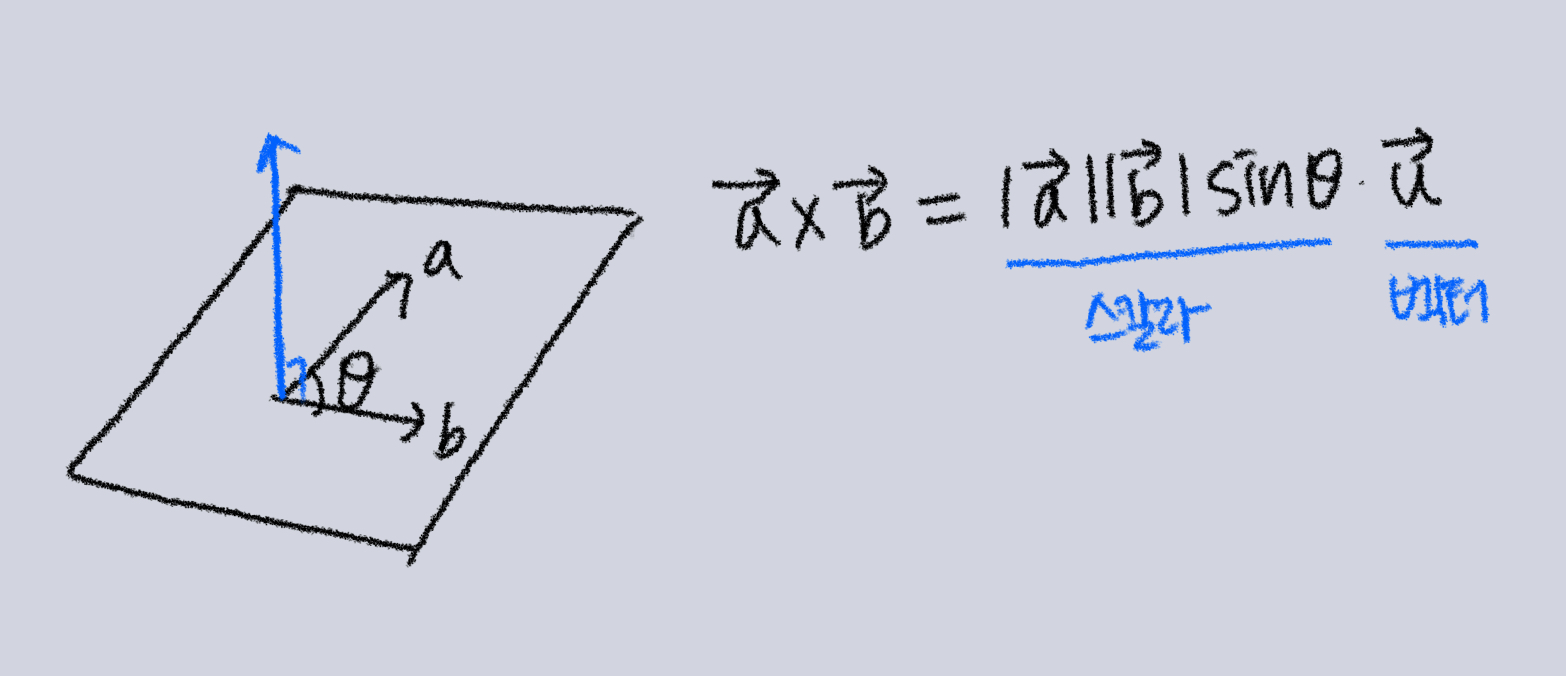 a
θ
b
a⃗ × b⃗ = |a⃗||b⃗| sinθ · u⃗
스칼라
벡터